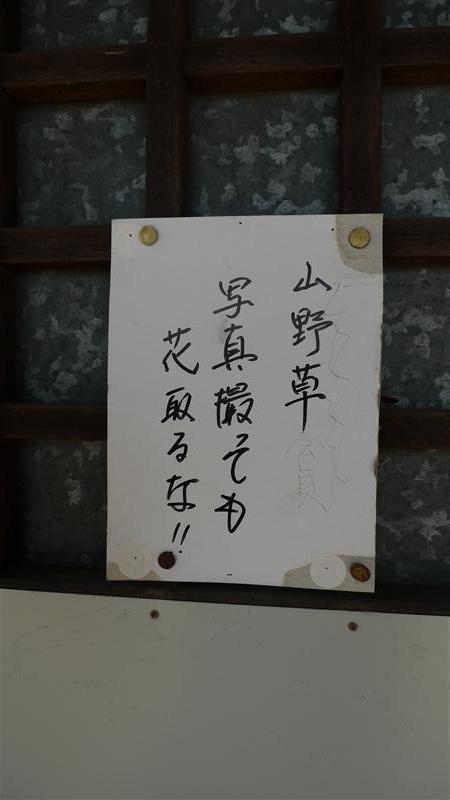 山野草
写真撮っても
花取るな!!